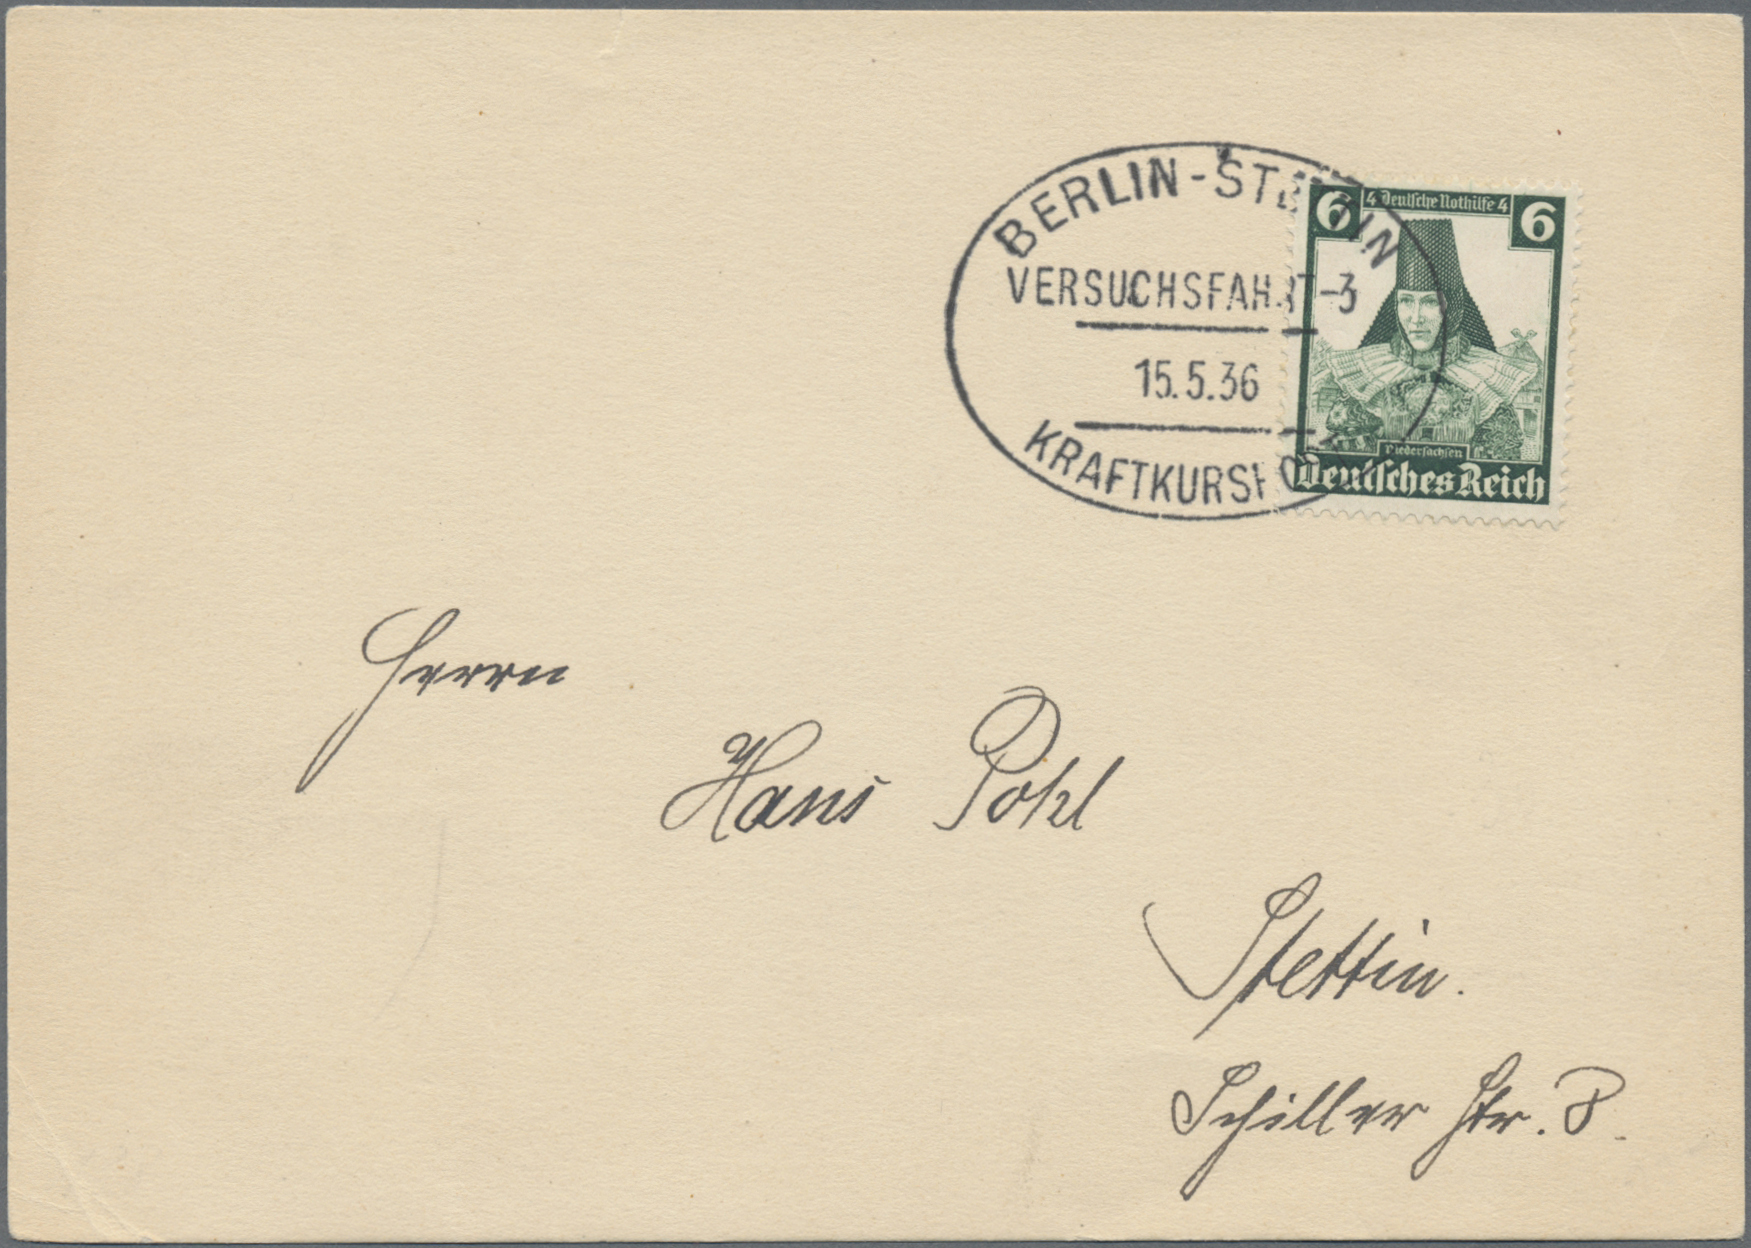 BERLIN-STETTIN
VERSUCHSFAHRT-3
15.5.36
KRAFTKURSPOST
6 4 Deutsche Nothilfe 4 6
Niedersachsen
Deutsches Reich
Herrn
Hans Pohl
Stettin.
Schiller Str. 8.